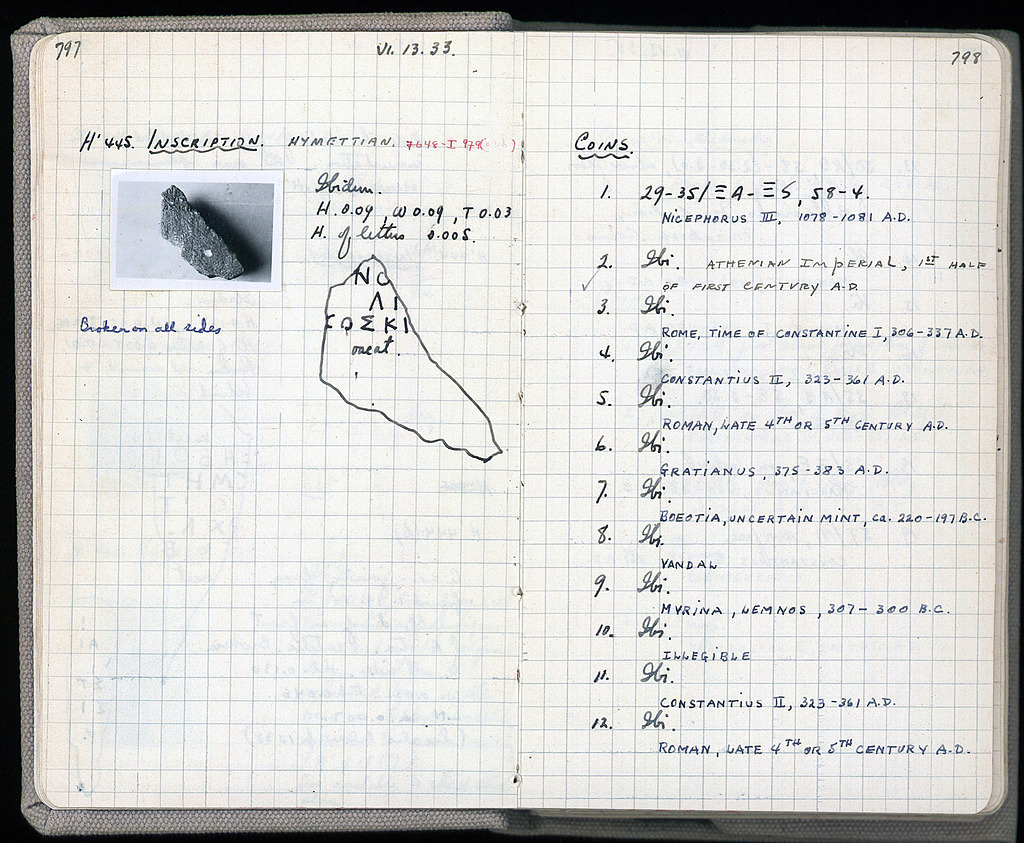 797
VI. 13. 33.
H' 445. INSCRIPTION. HYMETTIAN. 7648-I 979
Ibidem.
H. 0.09, W 0.09, T 0.03
H. of letters 0.005.
Broken on all sides
ΛΙ
ΟΣΚΙ
vacat.
798
COINS.
1. 29-35/ΞΑ-ΞS, 58-4.
NICEPHORUS III, 1078-1081 A.D.
2. Ibi. ATHENIAN IMPERIAL, 1ST HALF
✓ OF FIRST CENTURY A.D.
3. Ibi.
ROME, TIME OF CONSTANTINE I, 306-337 A.D.
4. Ibi.
CONSTANTIUS II, 323-361 A.D.
5. Ibi.
ROMAN, LATE 4TH OR 5TH CENTURY A.D.
6. Ibi.
GRATIANUS, 375-383 A.D.
7. Ibi.
BOEOTIA, UNCERTAIN MINT, ca. 220-197 B.C.
8. Ibi.
VANDAL
9. Ibi.
MYRINA, LEMNOS, 307-300 B.C.
10. Ibi.
ILLEGIBLE
11. Ibi.
CONSTANTIUS II, 323-361 A.D.
12. Ibi.
ROMAN, LATE 4TH OR 5TH CENTURY A.D.